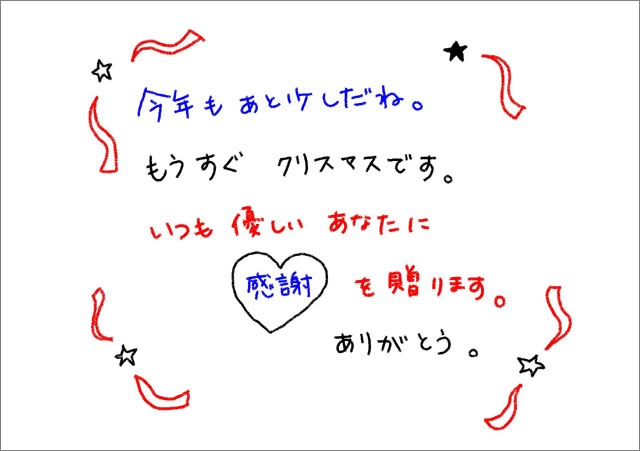 今年もあと少しだね。
もうすぐ クリスマスです。
いつも優しい あなたに
感謝 を贈ります。
ありがとう。